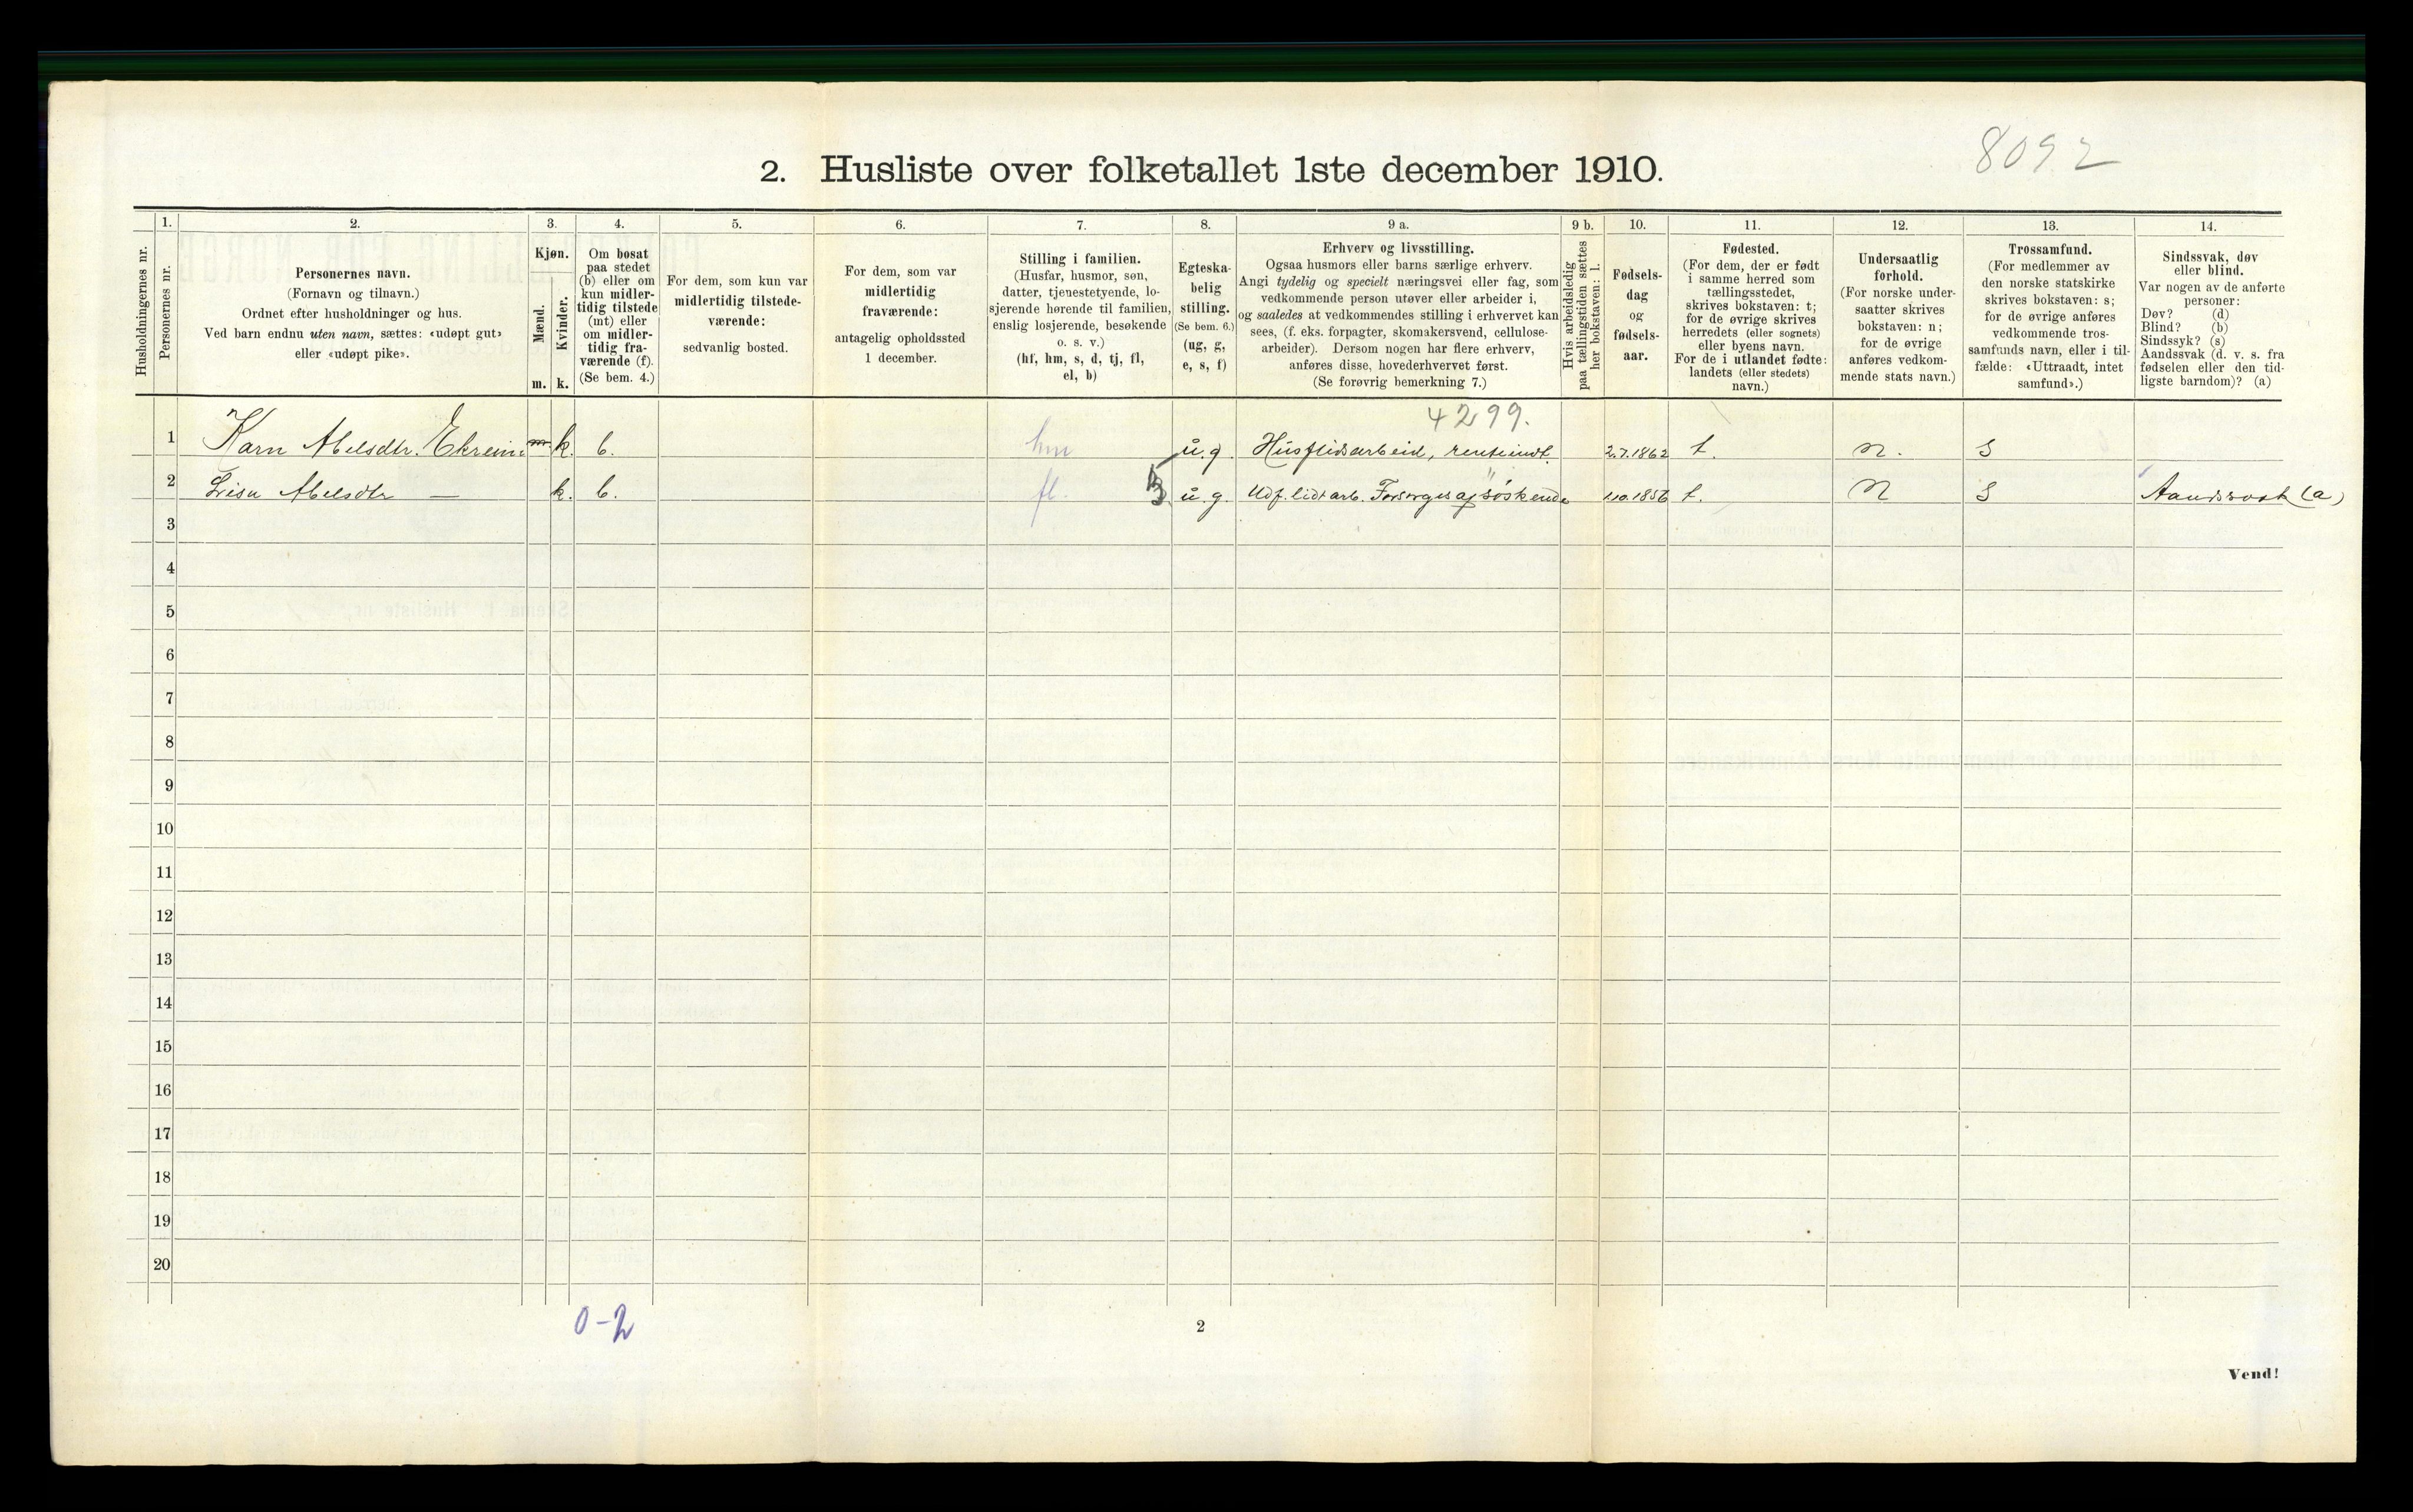 8092
2. Husliste over folketallet 1ste december 1910.
Husholdningernes nr.
1.
Personernes nr.
2.
Personernes navn.
(Fornavn og tilnavn.)
Ordnet efter husholdninger og hus.
Ved barn endnu uten navn, sættes: «udøpt gut»
eller «udøpt pike».
3.
Kjøn.
Mænd.
Kvinder.
m. k.
4.
Om bosat
paa stedet
(b) eller om
kun midler-
tidig tilstede
(mt) eller
om midler-
tidig fra-
værende (f).
(Se bem. 4.)
5.
For dem, som kun var
midlertidig tilstede-
værende:
sedvanlig bosted.
6.
For dem, som var
midlertidig
fraværende:
antagelig opholdssted
1 december.
7.
Stilling i familien.
(Husfar, husmor, søn,
datter, tjenestetyende, lo-
sjerende hørende til familien,
enslig losjerende, besøkende
o. s. v.)
(hf, hm, s, d, tj, fl,
el, b)
8.
Egteska-
belig
stilling.
(Se bem. 6.)
(ug, g,
e, s, f)
9 a.
Erhverv og livsstilling.
Ogsaa husmors eller barns særlige erhverv.
Angi tydelig og specielt næringsvei eller fag, som
vedkommende person utøver eller arbeider i,
og saaledes at vedkommendes stilling i erhvervet kan
sees, (f. eks. forpagter, skomakersvend, cellulose-
arbeider). Dersom nogen har flere erhverv,
anføres disse, hovederhvervet først.
(Se forøvrig bemerkning 7.)
9 b.
Hvis arbeidsledig
paa tællingstiden sættes
her bokstaven: l.
10.
Fødsels-
dag
og
fødsels-
aar.
11.
Fødested.
(For dem, der er født
i samme herred som
tællingsstedet,
skrives bokstaven: t;
for de øvrige skrives
herredets (eller sognets)
eller byens navn.
For de i utlandet fødte:
landets (eller stedets)
navn.)
12.
Undersaatlig
forhold.
(For norske under-
saatter skrives
bokstaven: n;
for de øvrige
anføres vedkom-
mende stats navn.)
13.
Trossamfund.
(For medlemmer av
den norske statskirke
skrives bokstaven: s;
for de øvrige anføres
vedkommende tros-
samfunds navn, eller i til-
fælde: «Uttraadt, intet
samfund».)
14.
Sindssvak, døv
eller blind.
Var nogen av de anførte
personer:
Døv? (d)
Blind? (b)
Sindssyk? (s)
Aandssvak (d. v. s. fra
fødselen eller den tid-
ligste barndom)? (a)
4299.
1 Karn Abelsdtr. Ekreim m k. b. hm u.g. Husflidsarbeid, renteindt. 2.7.1862 t. n. S
2 Abelsdtr — k. b. fl. u.g. Forsørges af søskende t. n S Aandssvak (a)
3
4
5
6
7
8
9
10
11
12
13
14
15
16
17
18
19
20
0-2
2
Vend!